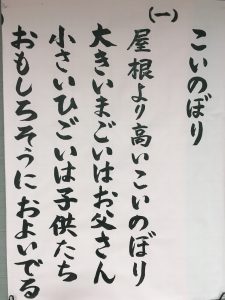 こいのぼり
(一)
屋根より高いこいのぼり
大きいまごいはお父さん
小さいひごいは子供たち
おもしろそうにおよいでる